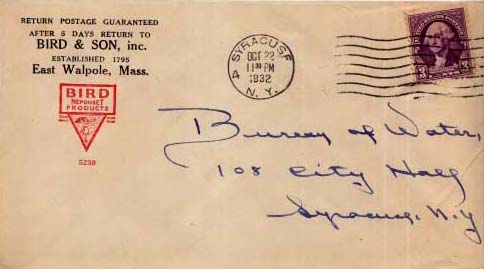 RETURN POSTAGE GUARANTEED
AFTER 5 DAYS RETURN TO
BIRD & SON, inc.
ESTABLISHED 1795
East Walpole, Mass.
BIRD
NEPONSET
PRODUCTS
5239
SYRACUSE
OCT 22
11 30 PM
1932
N. Y.
4
3
Bureau of Water,
108 City Hall
Syracuse, N.Y